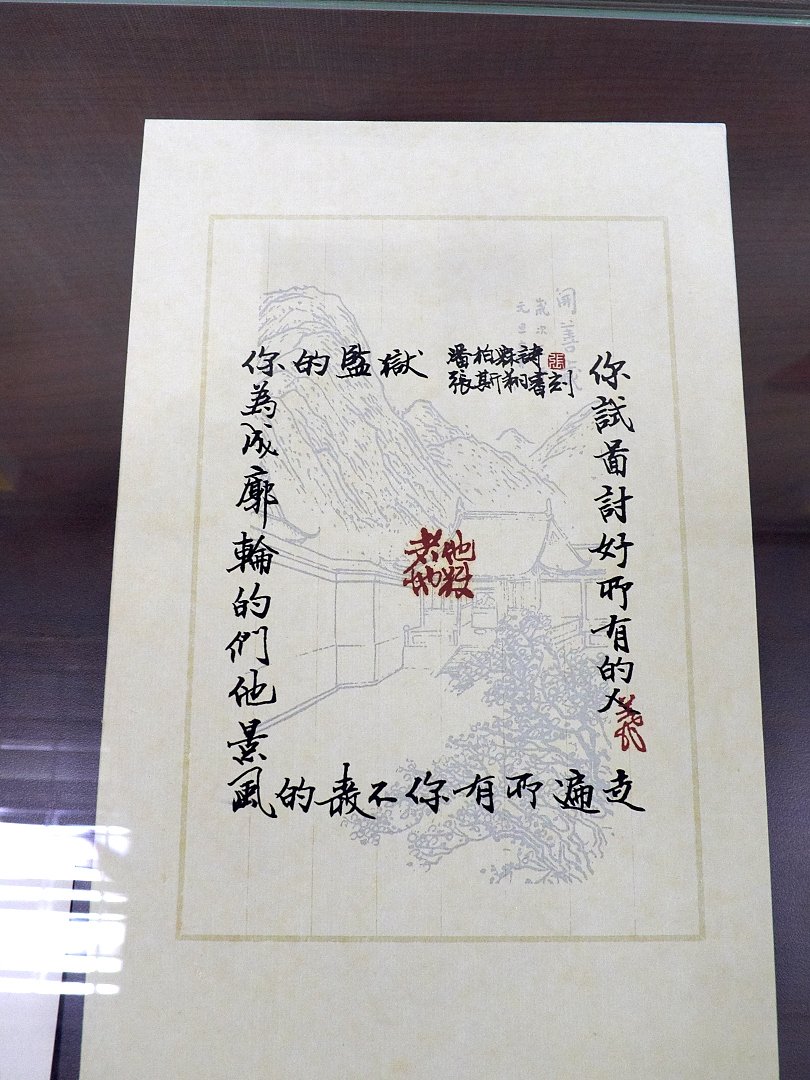 你試圖討好所有的人
走遍所有你不愛的風
景他們的輪廓成為
你的監獄
潘柏霖詩
張斯翔書刻
張
他殺
開善
歲次